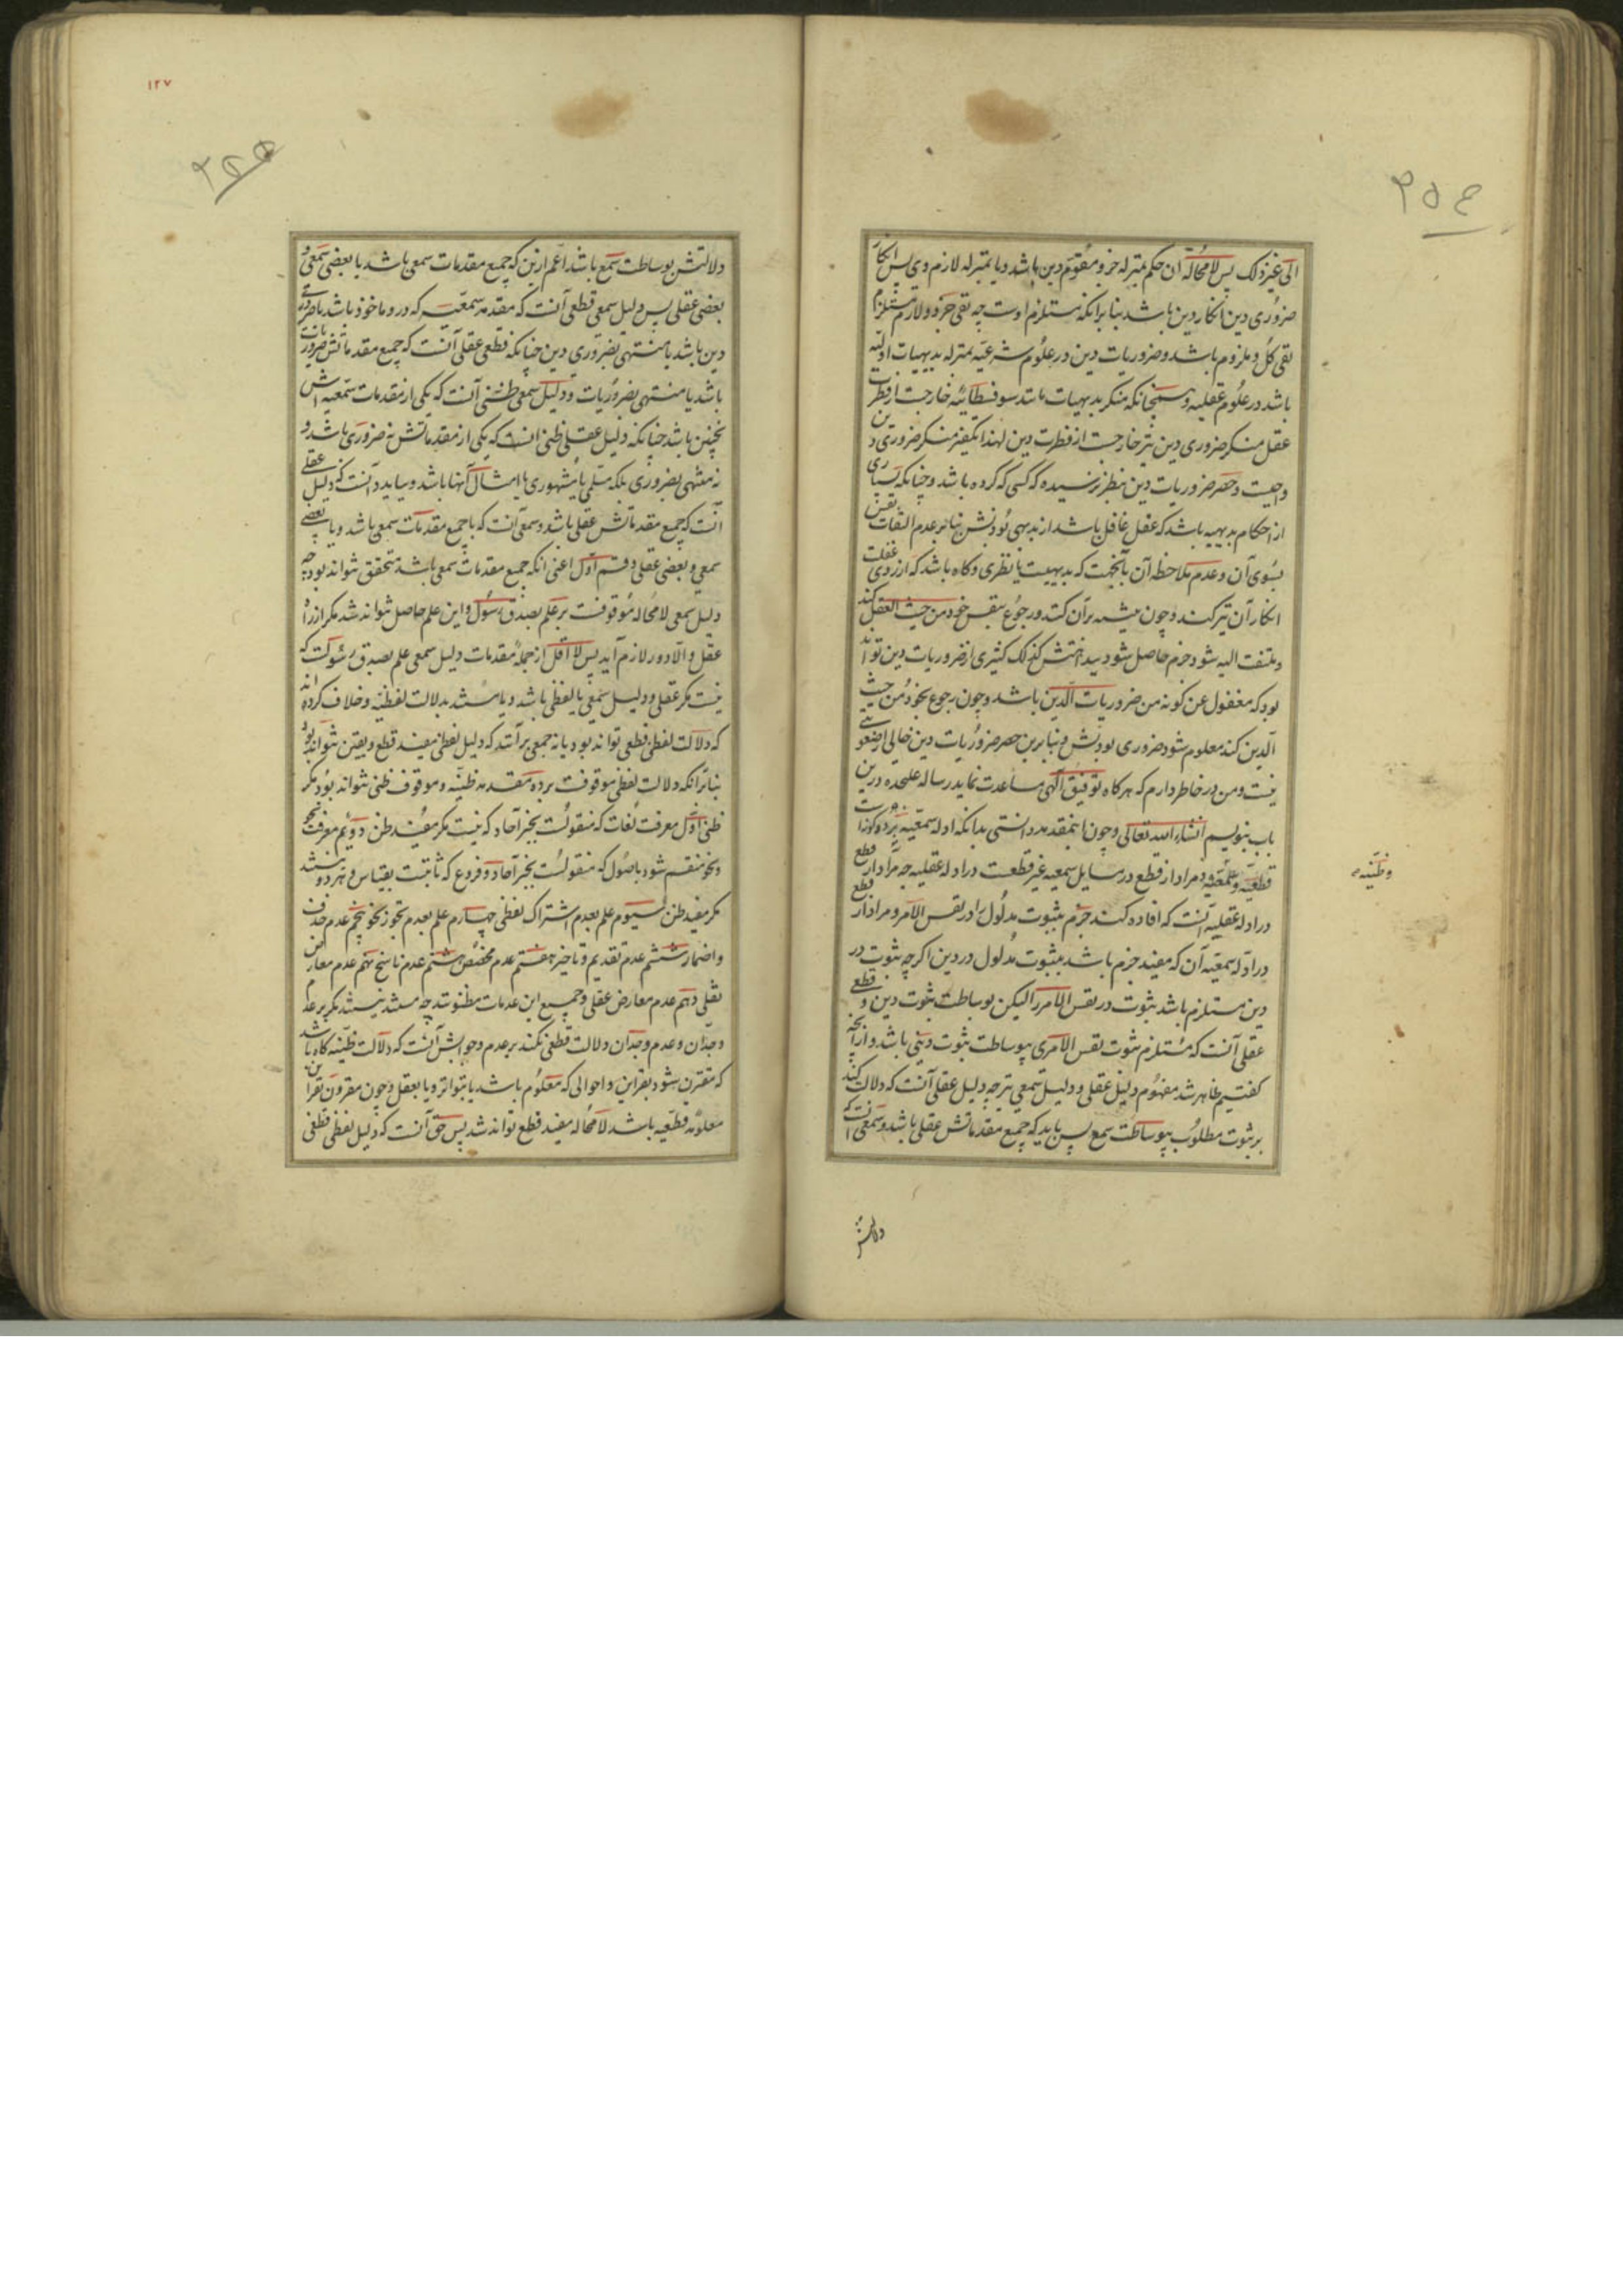 ۲۵۴
الی غیر ذلک پس لامحاله آن حکم بمنزله جزو مقوّم دین باشد و یا بمنزله لازم وی پس انکار
ضروری دین انکار دین باشد بنا بر انکه مستلزم اوست چه نفی جزو و لازم مستلزم
نفی کل و ملزوم باشد و ضروریات دین در علوم شرعیه بمنزله بدیهیات اولیه
باشد در علوم عقلیه و همچنانکه منکر بدیهیات مانند سوفسطائیه خارجست از فطرت
عقل منکر ضروری دین نیز خارجست از فطرت دین لهذا تکفیر منکر ضروری دین
واجبست و حصر ضروریات دین بنظر نرسیده که کسی که کرده باشد و چنانکه بسیاری
از احکام بدیهیه باشد که عقل غافل باشد از بدیهی بودنش بنا بر عدم التفات نفس
بسوی آن و عدم ملاحظه آن بآنجهت که بدیهیست یا نظری و گاه باشد که از روی غفلت
انکار آن نیز کند و چون تنبیه بر آن کنند و رجوع بنفس خود من حیث العقل کند
و ملتفت الیه شود جزم حاصل شود ببداهتش کذلک کثیری از ضروریات دین تواند
بود که مغفول عن کونه من ضروریات الدین باشد و چون رجوع بخود من حیث
الدین کند معلوم شود ضروری بودنش و بنابرین حصر ضروریات دین خالی از صعوبتی
نیست و من در خاطر دارم که هر گاه توفیق الهی مساعدت نماید رساله علیحده درین
باب بنویسم انشاء الله تعالی و چون اینمقدمه دانستی بدانکه ادله سمعیه بر دو گونه است
قطعیه و مراد از قطع در مسایل سمعیه غیر قطعست در ادله عقلیه چه مراد از قطع
وظنّیه
در ادله عقلیه آنست که افاده کند جزم بثبوت مدلول را در نفس الامر و مراد از قطع
در ادله سمعیه آن که مفید جزم باشد بثبوت مدلول در دین اگر چه ثبوت در
دین مستلزم باشد ثبوت در نفس الامر را لیکن بوساطت ثبوت دین و قطع
عقلی آنست که مستلزم ثبوت نفس الامری بیوساطت ثبوت دینی باشد و از آنچه
گفتیم ظاهر شد مفهوم دلیل عقلی و دلیل سمعی نیز چه دلیل عقلی آنست که دلالت کند
بر ثبوت مطلوب بیوساطت سمع پس باید که جمیع مقدماتش عقلی باشد و سمعی آنست که
دلالتش
۱۲۷
۲۵۵
دلالتش بوساطت سمع باشد اعم ازین که جمیع مقدمات سمعی باشد یا بعضی سمعی و
بعضی عقلی پس دلیل سمعی قطعی آنست که مقدمه سمعیّه که درو ماخوذ باشد یا ضروری
دین باشد یا منتهی بضروری دین چنانکه قطعی عقلی آنست که جمیع مقدماتش ضروریات
باشد یا منتهی بضروریات و دلیل سمعی ظنی آنست که یکی از مقدمات سمعیه اش
نچنین باشد چنانکه دلیل عقلی ظنی آنست که یکی از مقدماتش نه ضروری باشد و
نه منتهی بضروری بلکه مسلمی یا مشهوری یا امثال آنها باشد و بباید دانست که دلیل عقلی
آنست که جمیع مقدماتش عقلی باشد و سمعی آنست که یا جمیع مقدمات سمعی باشد و یا بعضی
سمعی و بعضی عقلی و قسم اول اعنی آنکه جمیع مقدمات سمعی باشد متحقق نتواند بود چه
دلیل سمعی لامحاله موقوفست بر علم بصدق رسول و این علم حاصل نتواند شد مگر از راه
عقل و الا دور لازم آید پس لا اقل از جمله مقدمات دلیل سمعی علم بصدق رسولست که
نیست مگر عقلی و دلیل سمعی یا لفظی باشد و یا مستند بدلالت لفظیه و خلاف کرده اند
که دلالت لفظی قطعی تواند بود یا نه جمعی برآنند که دلیل لفظی مفید قطع و یقین نتواند بود
بنا بر آنکه دلالت لفظی موقوفست بر ده مقدمه ظنیه و موقوف ظنی نتواند بود مگر
ظنی اول معرفت لغات که منقولست بخبر آحاد که نیست مگر مفید ظن دوئم معرفت نحو
و نحو منقسم شود باصول که منقولست بخبر آحاد و فروع که ثابتست بقیاس و هر دو نیستند
مگر مفید ظن سیوم علم بعدم اشتراک لفظی چهارم علم بعدم تجوز پنجم عدم حذف
و اضمار ششم عدم تقدیم و تاخیر هفتم عدم مخصص هشتم عدم ناسخ نهم عدم معارض
نقلی دهم عدم معارض عقلی و جمیع این عدمات مظنونند چه مستند نیستند مگر بر عدم
وجدان و عدم وجدان دلالت قطعی نکند بر عدم و جوابش آنست که دلالت ظنیه گاه باشد
که مقترن شود بقراین و احوالی که معلوم باشد یا بتواتر و یا بعقل و چون مقرون بقراین
معلومه قطعیه باشد لامحاله مفید قطع تواند شد پس حق آنست که دلیل لفظی قطعی